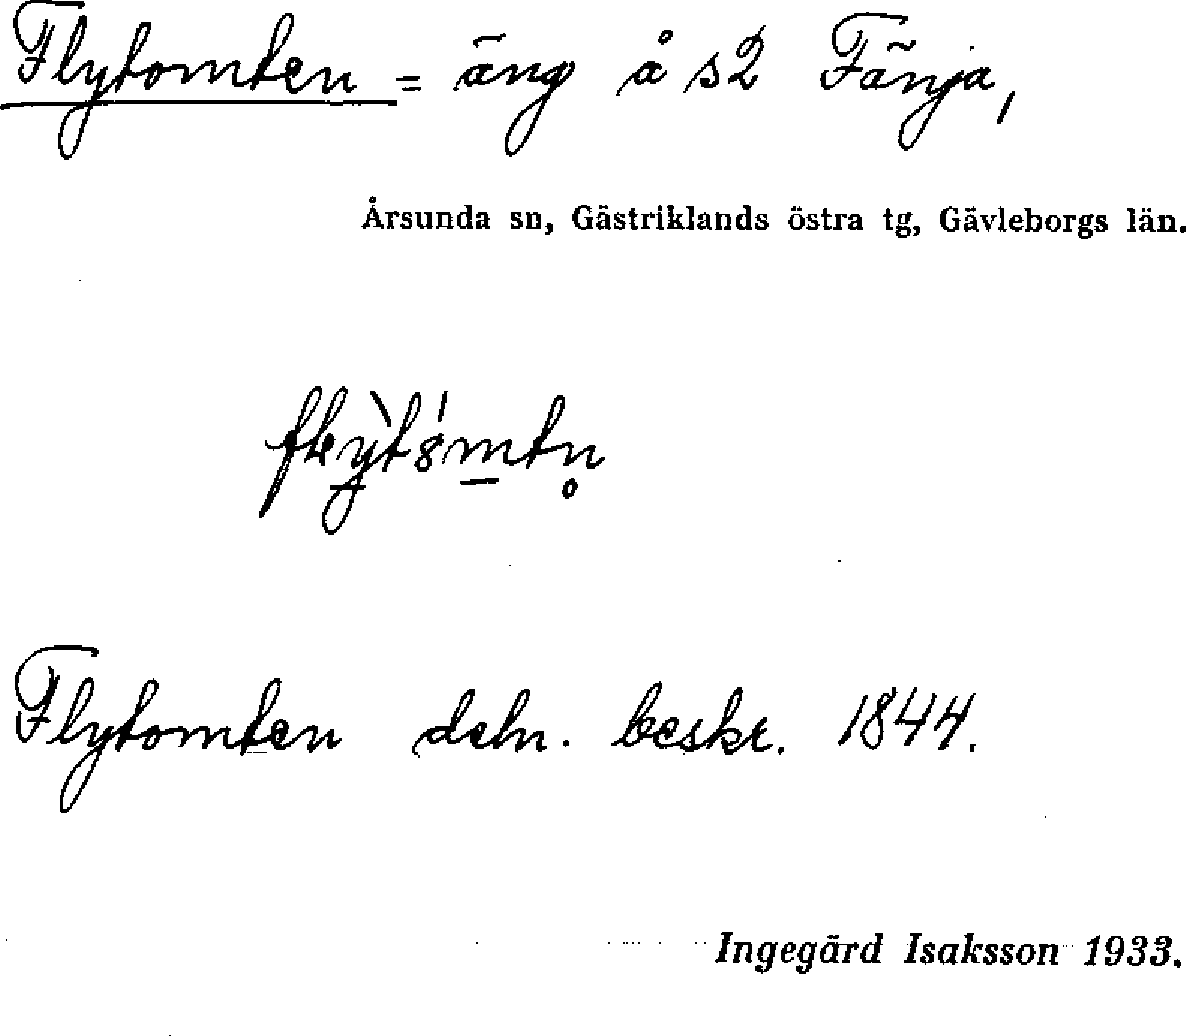 Flytomten = äng å s2 Fänja,
Årsunda sn, Gästriklands östra tg, Gävleborgs län.
Flytomten deln. beskr. 1844.
Ingegärd Isaksson 1933.